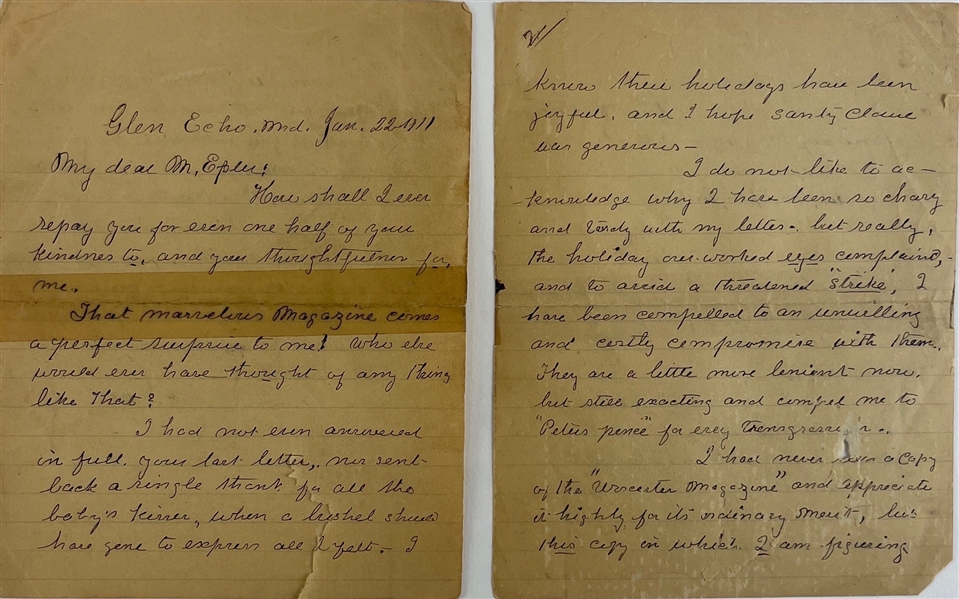 Glen Echo, Md. Jan. 22 1911
My dear Mr. Epler:
How shall I ever
repay you for even one half of your
kindness to, and your thoughtfulness for,
me.
That marvelous Magazine comes
a perfect surprise to me! Who else
would ever have thought of any thing
like that?
I had not even answered
in full, your last letter, nor sent
back a single thank for all the
baby's kisses, when a bushel should
have gone to express all I felt. I
2/
know their holidays have been
joyful, and I hope Santy Claus
was generous –
I do not like to ac-
knowledge why I have been so chary
and tardy with my letter, but really,
the holiday over-worked eyes complained,
and to avoid a threatened "strike", I
have been compelled to an unwilling
and costly compromise with them.
They are a little more lenient now,
but still exacting and compel me to
"Peters pence" for every transgression.
I had never seen a copy
of the "Worcester Magazine" and appreciate
it highly for its ordinary merit, but
this copy in which I am figuring